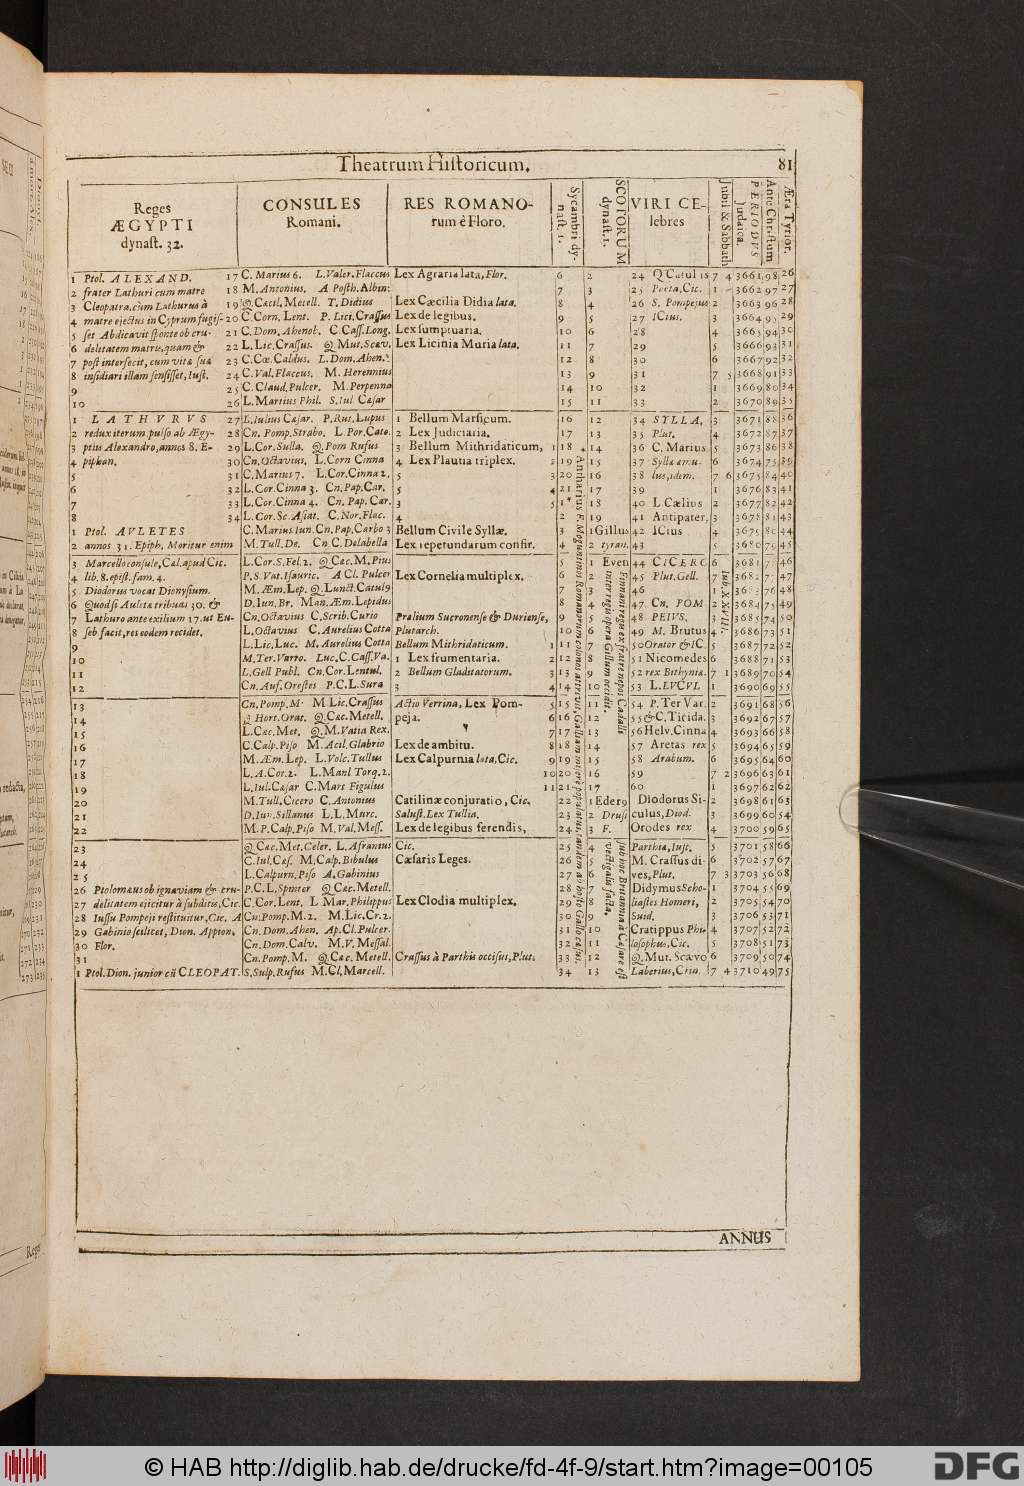 Theatrum Historicum. 81
Reges ÆGYPTI dynast. 32.
CONSULES Romani.
RES ROMANO- rum è Floro.
Sycambri dynast. 1.
SCOTORUM dynast. 1.
VIRI CE- lebres
Jubil & Sabbath
PERIODUS Judaica.
Ante Christum
Æra Tyrior.
1 Ptol. ALEXAND. 17 C. Marius 6. L. Valer. Flaccus Lex Agraria lata, Flor. 6 2 24 Q Catulus 7 4 3661 98 26
2 frater Lathuri cum matre 18 M. Antonius. A Posth. Albin: 7 3 25 Poeta, Cic. 1 3662 97 27
3 Cleopatra. cùm Lathurus à 19 Q. Cæcil. Metell. T. Didius Lex Cæcilia Didia lata. 8 4 26 S. Pompejus 2 3663 96 28
4 matre ejectus in Cyprum fugis- 20 C. Corn. Lent. P. Lici. Crassus Lex de legibus. 9 5 27 ICius. 3 3664 95 29
5 set Abdicavit sponte ob cru- 21 C. Dom. Ahenob. C. Cass. Long. Lex sumptuaria. 10 6 28 4 3665 94 30
6 delitatem matris, quam & 22 L. Lic. Crassus. Q Mut. Scæv. Lex Licinia Muria lata. 11 7 29 5 3666 93 31
7 post interfecit, cum vita sua 23 C. Cœ. Caldus. L. Dom. Ahen. 12 8 30 6 3667 92 32
8 insidiari illam sensisset, Just. 24 C. Val. Flaccus. M. Herennius 13 9 31 7 5 3668 91 33
9 25 C. Claud. Pulcer. M. Perpenna 14 10 32 1 3669 80 34
10 26 L. Martius Phil. S. Iul Cæsar 15 11 33 2 3670 89 35
1 LATHVRVS 27 L. Iulius Cæsar. P. Rut. Lupus 1 Bellum Marsicum. 16 12 34 SYLLA, 3 3671 88 36
2 redux iterum pulso ab Ægy- 28 Cn. Pomp. Strabo. L Por. Cato. 2 Lex Judiciaria. 17 13 35 Plut. 4 3672 87 37
3 ptiis Alexandro, annos 8. E- 29 L. Cor. Sulla. Q Pom Rufus 3 Bellum Mithridaticum, 1 18 14 36 C. Marius 5 3673 86 38
4 piphan. 30 Cn. Octavius. L. Corn Cinna 4 Lex Plautia triplex. 2 19 15 37 Syllæ æmu- 6 3674 75 39
5 31 C. Marius 7. L. Cor. Cinna 2. 5 3 20 16 38 lus, idem. 7 6 3675 84 40
6 32 L. Cor. Cinna 3. Cn. Pap. Car. 5 4 21 17 39 1 3676 83 41
7 33 L. Cor. Cinna 4. Cn. Pap. Car. 3 5 1 18 40 L Cælius 2 3677 82 42
8 34 L. Cor. Sc. Asiat. C. Nor. Flac. 4 2 19 41 Antipater, 3 3678 81 43
1 Ptol. AVLETES C. Marius Iun. Cn. Pap. Carbo 3 Bellum Civile Syllæ. 3 1 Gillus 42 ICius 4 3679 80 44
2 annos 31. Epiph. Moritur enim M. Tull. De. Cn C. Dolabella Lex repetundarum confir. 4 2 tyran. 43 5 3680 79 45
3 Marcello consule, Cal. apud Cic. L. Cor. S. Fel. 2. Q Cæc. M. Pius 5 1 Even 44 CICERO 6 3681 78 46
4 lib. 8. epist. fam. 4. P. S. Vat. Isauric. A Cl. Pulcer Lex Cornelia multiplex. 6 2 45 Plut. Gell. 7 3682 77 47
5 Diodorus vocat Dionysium. M. Æm. Lep. Q. Lunct. Catul9 7 3 46 1 3683 76 48
6 Quod si Auletæ tribuas 30. & D. Iun. Br. Man. Æm. Lepidus 8 4 47 Cn. POM 2 3684 75 49
7 Lathuro ante exilium 17. ut Eu- Cn. Octavius C. Scrib. Curio Prælium Sucronense & Duriense, 9 5 48 PEIVS. 3 3685 74 50
8 seb facit, res eodem recidet. L. Octavius C. Aurelius Cotta Plutarch. 10 6 49 M. Brutus 4 3686 73 51
9 L. Lic. Luc. M. Aurelius Cotta Bellum Mithridaticum. 1 11 7 50 Orator & IC. 5 3687 72 52
10 M. Ter. Varro. Luc. C. Cass. Va. 1 Lex frumentaria. 2 12 8 51 Nicomedes 6 3688 71 53
11 L. Gell Publ. Cn. Cor. Lentul. 2 Bellum Gladitatorum. 3 13 9 52 rex Bithynia. 7 1 3689 70 54
12 Cn. Auf. Orestes P. C. L. Sura 3 4 14 10 53 L. LVCVL 1 3690 69 55
13 Cn. Pomp. M. M Lic. Crassus Actio Verrina, Lex Pom- 5 15 11 54 P. Ter Var. 2 3691 68 56
14 Q Hort. Orat. Q Cæc. Metell. peja. 6 16 12 55 & C. Ticida. 3 3692 67 57
15 L. Cæc. Met. Q. M. Vatia Rex. 7 17 13 56 Helv. Cinna 4 3693 66 58
16 C. Calp. Piso M. Acil. Glabrio Lex de ambitu. 8 18 14 57 Aretas rex 5 3694 65 59
17 M. Æm. Lep. L. Volc. Tullus Lex Calpurnia lata, Cic. 9 19 15 58 Arabum. 6 3695 64 60
18 L. A. Cor. 2. L. Manl Torq. 2. 10 20 16 59 7 2 3696 63 61
19 L. Iul. Cæsar C. Mars Figulus 11 21 17 60 1 3697 62 62
20 M. Tull. Cicero C. Antonius Catilinæ conjuratio, Cic. 22 1 Eder9 Diodorus Si- 2 3698 61 63
21 D. Iun. Sillanus L. L. Murc. Salust. Lex Tullia. 23 2 Drusi culus, Diod. 3 3699 60 54
22 M. P. Calp. Piso M. Val. Mess. Lex de legibus ferendis, 24 3 F. Orodes rex 4 3700 59 65
23 Q Cæc. Met. Celer. L. Afranius Cic. 25 4 Parthia, Just. 5 3701 58 66
24 C. Iul. Cæs. M. Calp. Bibulus Cæsaris Leges. 26 5 M. Crassus di- 6 3702 57 67
25 L. Calpurn. Piso A. Gabinius 27 6 ves, Plut. 7 3 3703 56 68
26 Ptolomæus ob ignaviam & cru- P. C. L. Spinter Q Cæc. Metell. 28 7 Didymus Scho- 1 3704 55 69
27 delitatem ejicitur à subditis, Cic. C. Cor. Lent. L Mar. Philippus Lex Clodia multiplex. 29 8 liastes Homeri, 2 3705 54 70
28 Iussu Pompeji restituitur, Cic. A Cn: Pomp. M. 2. M. Lic. Cr. 2. 30 9 Suid. 3 3706 53 71
29 Gabinio scilicet, Dion. Appion, Cn. Dom. Ahen. Ap. Cl. Pulcer. 31 10 Cratippus Phi- 4 3707 52 72
30 Flor. Cn. Dom. Calv. M. V. Messal. 32 11 losophus, Cic. 5 3708 51 73
31 Cn. Pomp. M. Q. Cæc. Metell. Crassus à Parthis occisus, Plut. 33 12 Q. Mut. Scævo 6 3709 50 74
1 Ptol. Dion. junior cũ CLEOPAT. S. Sulp. Rufus M. Cl. Marcell. 34 13 Laberius, Crin. 7 4 3710 49 75
Antharius F. Moguntinos Romanorum colonos attrivit, Galliam misere populatus, tandem ab hoste Gallo cæsus.
Finnani regis ex fratre nepos Cadalli
interregis opera Gillum occidit.
sub hoc Britannia à Cæsare est
vectigalis facta.
Jub. XXVIII.
ANNUS
© HAB http://diglib.hab.de/drucke/fd-4f-9/start.htm?image=00105
DFG